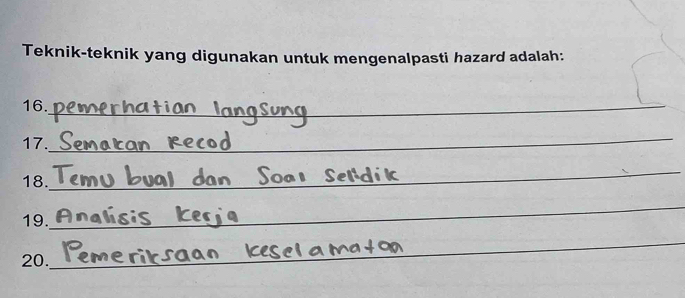 Teknik-teknik yang digunakan untuk mengenalpasti hazard adalah:
16. pemerhatian langsung
17. Semakan Recod
18. Temu bual dan Soal Selidik
19. Analisis kerja
20. Pemeriksaan keselamatan